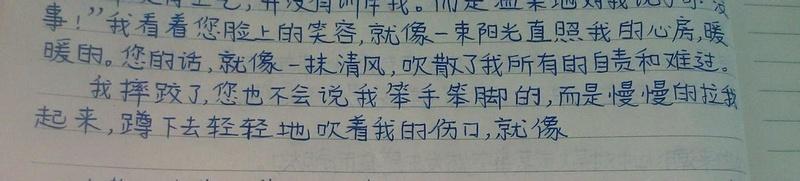 并没有训斥我。而是温柔地对我说
事！”我看着您脸上的笑容,就像一束阳光直照我的心房,暖
暖的。您的话,就像一抹清风,吹散了我所有的自责和难过。
我摔跤了,您也不会说我笨手笨脚的,而是慢慢的拉我
起来,蹲下去轻轻地吹着我的伤口,就像